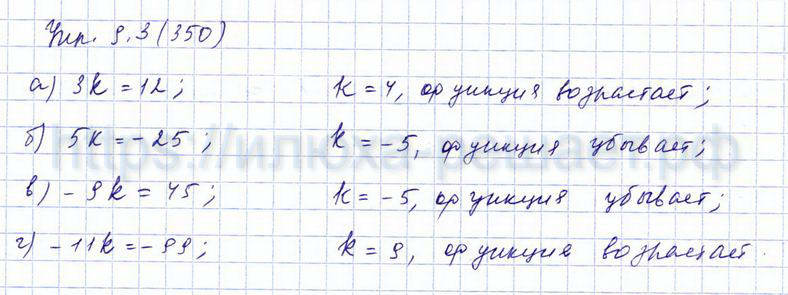 Упр. 9.3 (350)
а) 3k = 12; k = 4, функция возрастает;
б) 5k = -25; k = -5, функция убывает;
в) -9k = 45; k = -5, функция убывает;
г) -11k = -99; k = 9, функция возрастает.
https://илюха-решает.рф